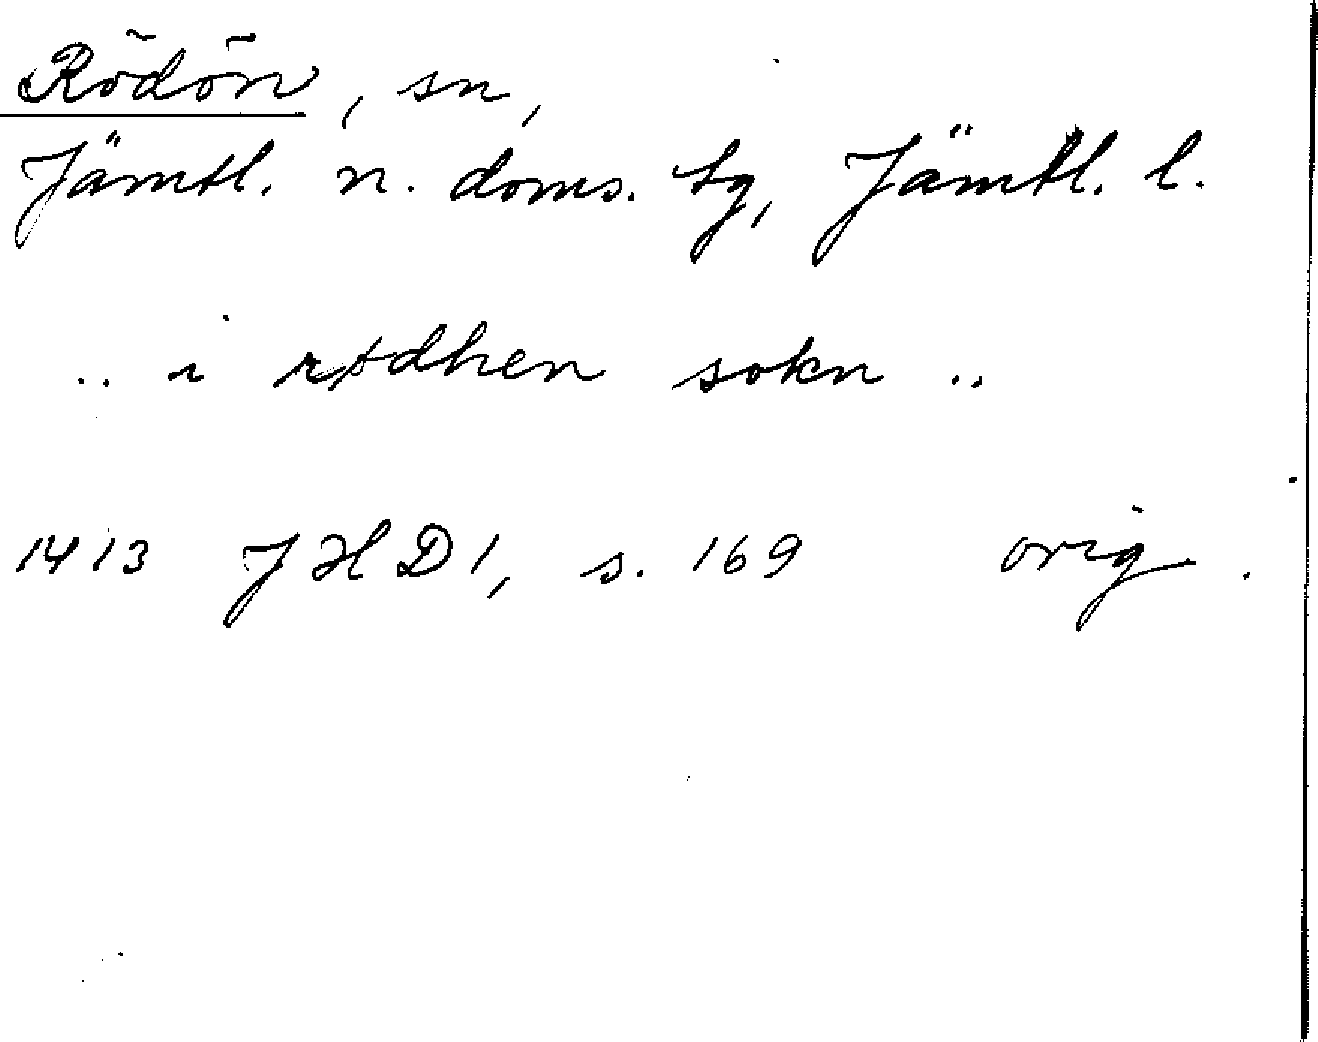 Rödön, sn,
Jämtl. n. doms. tg, Jämtl. l.
.. i rødhen sokn ..
1413 JHD1, s. 169 orig.